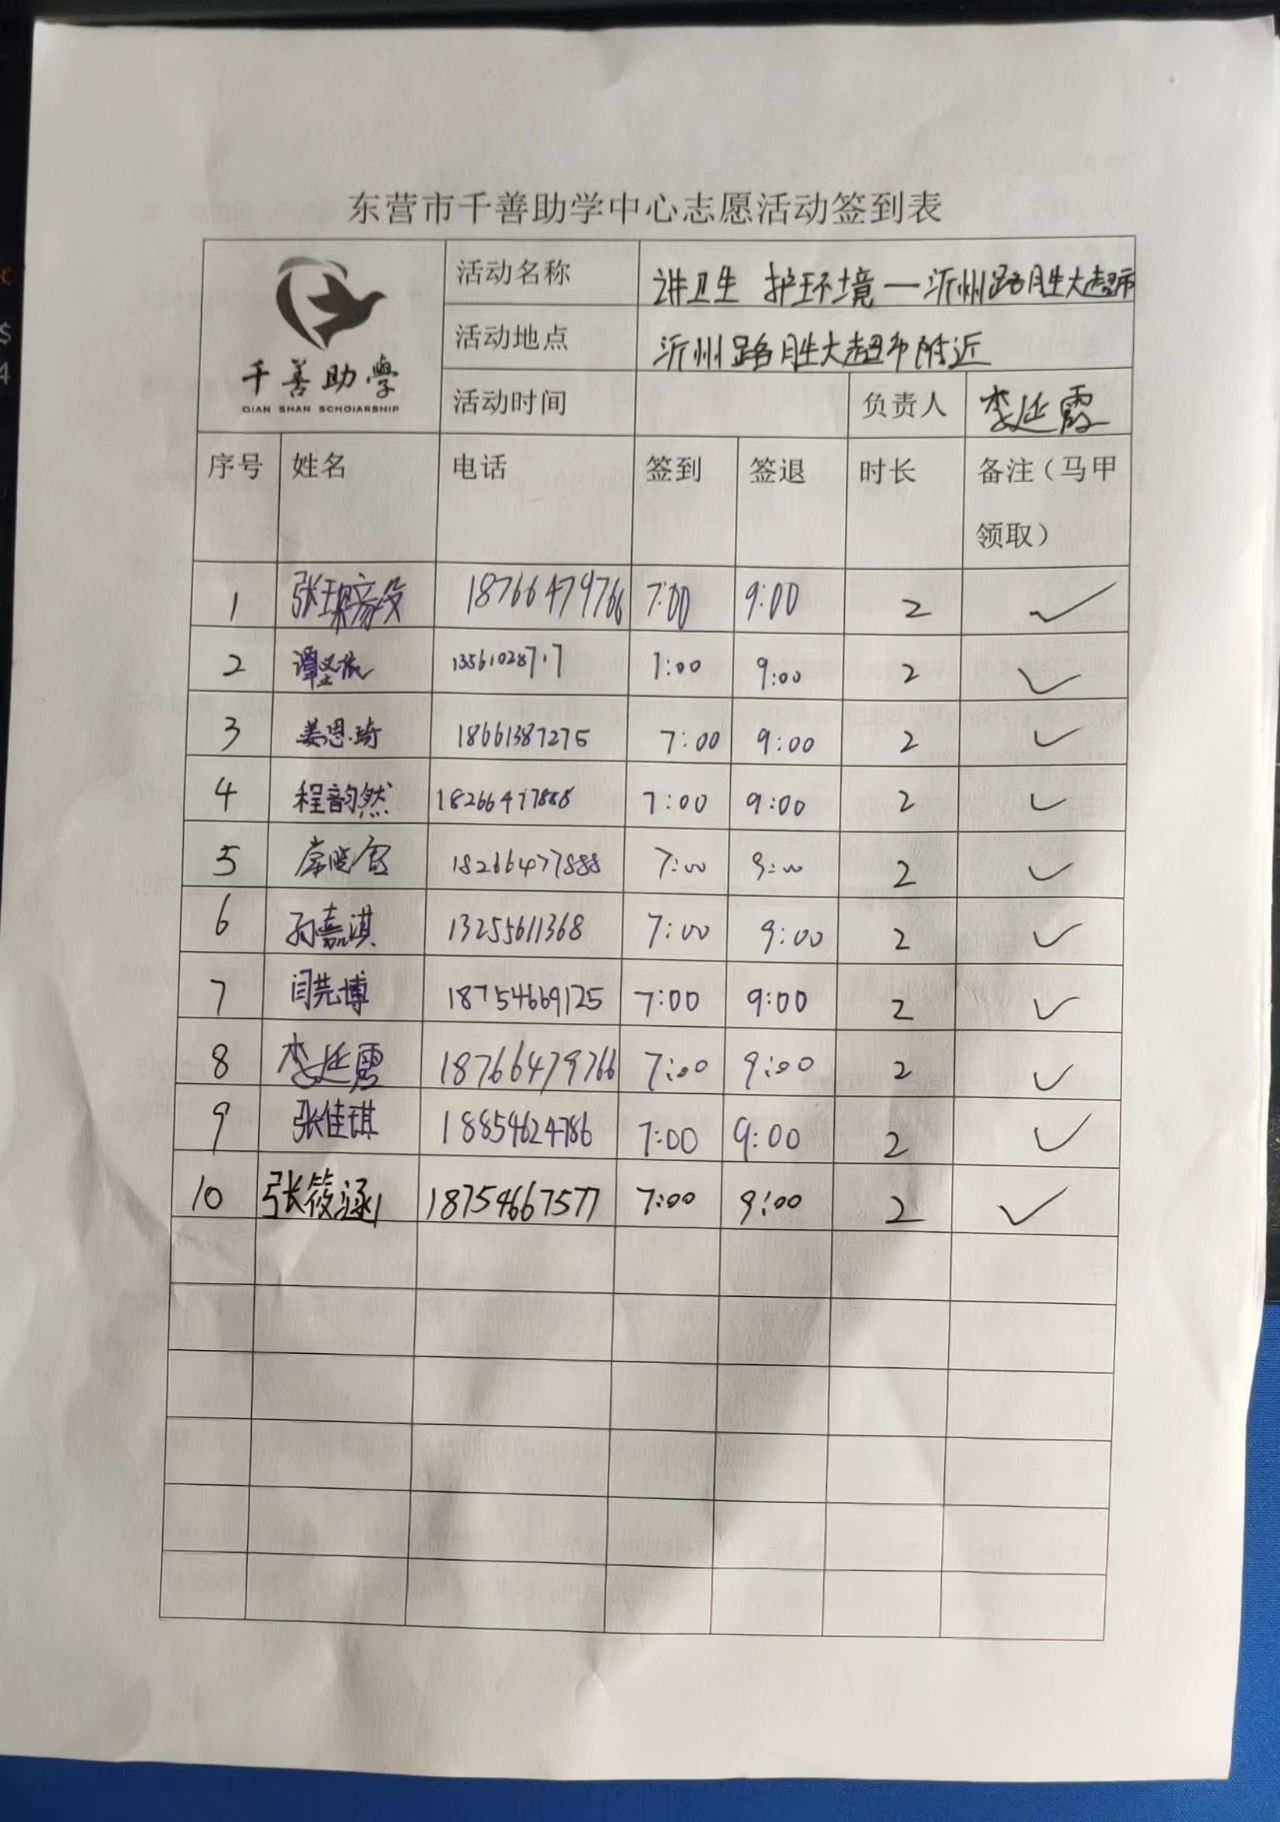 东营市千善助学中心志愿活动签到表
千善助學
QIAN SHAN SCHOIARSHIP
活动名称 讲卫生 护环境一沂州路胜大超市
活动地点 沂州路胜大超市附近
活动时间 负责人 李延霞
序号 姓名 电话 签到 签退 时长 备注（马甲领取）
1 18766479766 7:00 9:00 2 ✓
2 7:00 9:00 2 ✓
3 姜恩琦 18661387275 7:00 9:00 2 ✓
4 程韵然 18266477888 7:00 9:00 2 ✓
5 18266477888 7:00 9:00 2 ✓
6 孙嘉淇 13255611368 7:00 9:00 2 ✓
7 闫芫博 18754669125 7:00 9:00 2 ✓
8 李延霞 18766479766 7:00 9:00 2 ✓
9 张佳琪 18854624786 7:00 9:00 2 ✓
10 张筱涵 18754667577 7:00 9:00 2 ✓